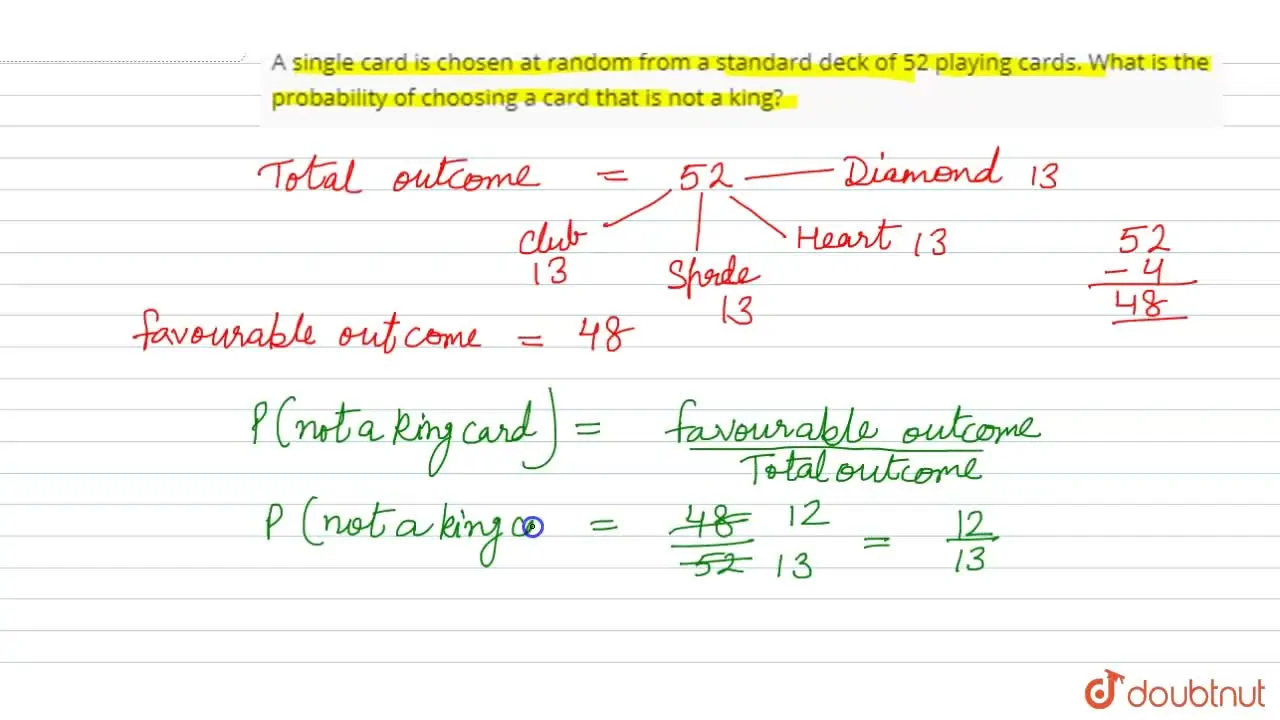 A single card is chosen at random from a standard deck of 52 playing cards. What is the
probability of choosing a card that is not a king?
Total outcome = 52 — Diamond 13
Club
13
Spade
13
Heart 13
52
- 4
48
favourable outcome = 48
P(not a king card) = favourable outcome
Total outcome
P (not a king c = 48 12 = 12
52 13 13
doubtnut